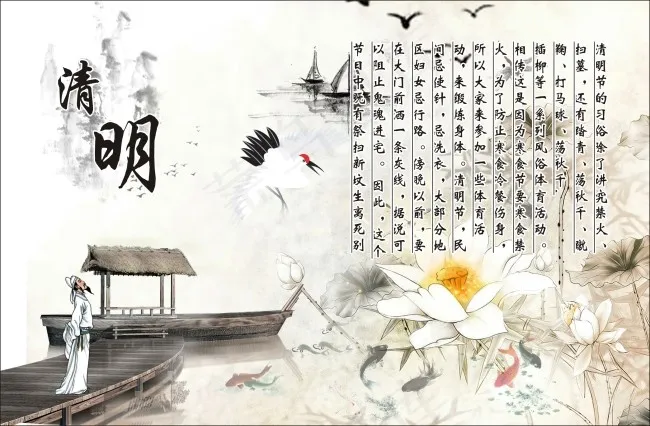 清明
清明节的习俗除了讲究禁火、
扫墓,还有踏青、荡秋千、蹴
鞠、打马球、荡秋千,
插柳等一系列风俗体育活动。
相传这是因为寒食节要寒食禁
火,为了防止寒食冷餐伤身,
所以大家来参加一些体育活
动,来锻炼身体。清明节,民
间忌使针,忌洗衣,大部分地
区妇女忌行路。傍晚以前,要
在大门前洒一条灰线,据说可
以阻止鬼魂进宅。因此,这个
节日中既有祭扫新坟生离死别